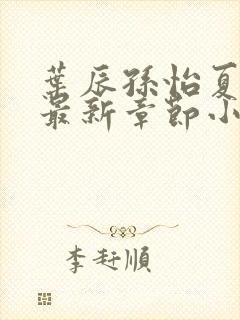 葉辰孫怡夏
最新章節小
李玨順